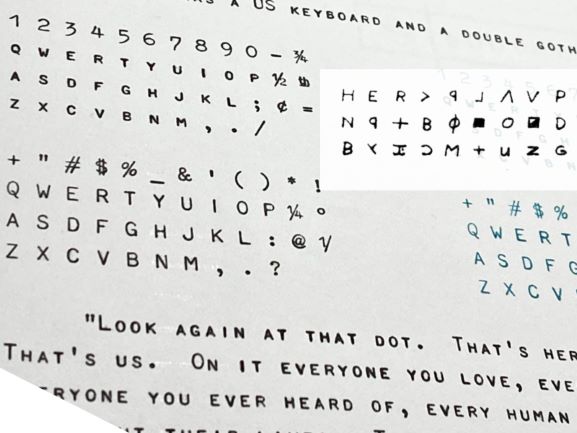 A US KEYBOARD AND A DOUBLE GOTH
1 2 3 4 5 6 7 8 9 0 - ¾
Q W E R T Y U I O P ½ th
A S D F G H J K L ; ¢ =
Z X C V B N M , . /
H E R > ꟼ ⅃ Λ V P
N ꟼ + B ϕ ■ O ◪ D
B M + U Z G
+ " # $ % _ & ' ( ) * !
Q W E R T Y U I O P ¼ °
A S D F G H J K L : @
Z X C V B N M , . ?
+ " # $ %
Q W E R T
A S D F G
Z X C V
"LOOK AGAIN AT THAT DOT. THAT'S HER
THAT'S US. ON IT EVERYONE YOU LOVE, EVE
ERYONE YOU EVER HEARD OF, EVERY HUMAN